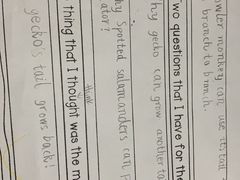 owler monkey can use its tail
branch to branch.
wo questions that I have for th
hy gecko can grow another ta
hy Spotted salamanders can
ator?
think
thing that I thought was the m
gecko's tail grows back!